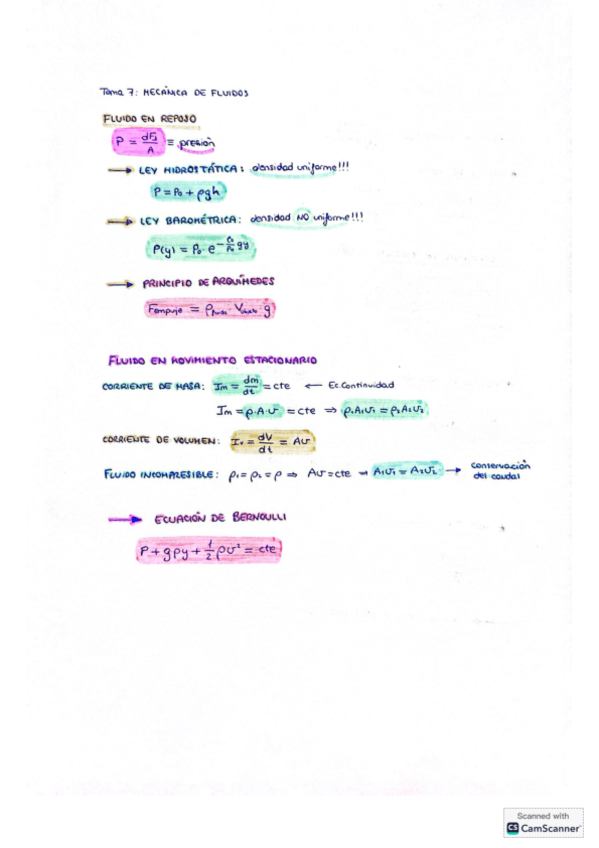 Tema 7: MECÁNICA DE FLUIDOS
FLUIDO EN REPOSO
P = dF⊥/A ≡ presión
→ LEY HIDROSTÁTICA: densidad uniforme!!!
P = P₀ + ρgh
→ LEY BAROMÉTRICA: densidad NO uniforme!!!
P(y) = P₀ · e^(-ρ₀/P₀ gy)
→ PRINCIPIO DE ARQUÍMEDES
Fempuje = ρ V g
FLUIDO EN MOVIMIENTO ESTACIONARIO
CORRIENTE DE MASA: Im = dm/dt = cte ← Ec. Continuidad
Im = ρ·A·v = cte ⇒ ρ₁A₁v₁ = ρ₂A₂v₂
CORRIENTE DE VOLUMEN: Iv = dV/dt = Av
FLUIDO INCOMPRESIBLE: ρ₁ = ρ₂ = ρ ⇒ Av = cte ⇒ A₁v₁ = A₂v₂ → conservación del caudal
→ ECUACIÓN DE BERNOULLI
P + gρy + 1/2 ρv² = cte
Scanned with
CS CamScanner